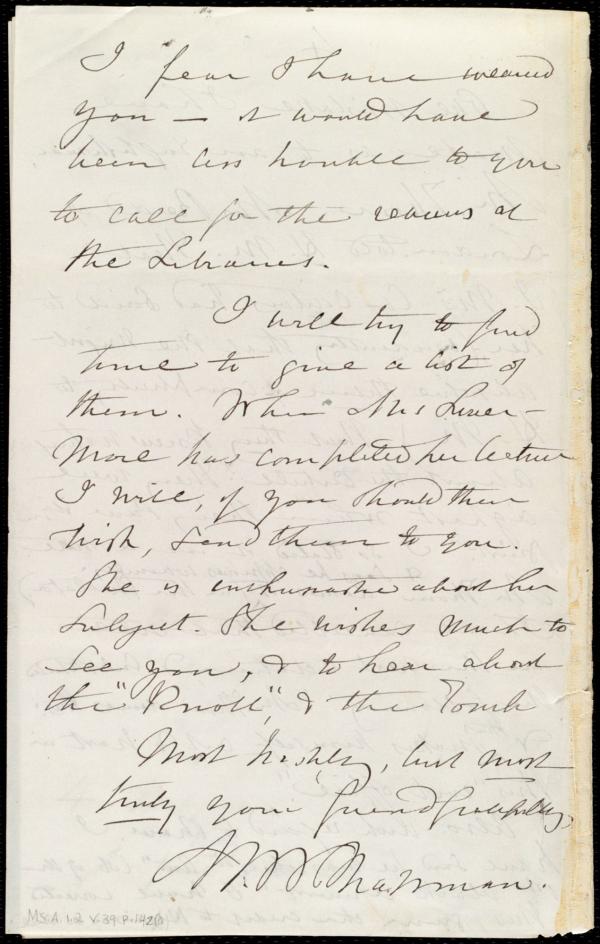 I fear I have wearied
you — it would have
been less trouble to you
to call for the reviews at
the Libraries.
I will try to find
time to give a list of
them. When Mrs Liver-
more has completed her lecture
I will, if you should then
wish, send them to you.
She is enthusiastic about her
subject. She wishes much to
see you, & to hear about
the "Knoll", & the Tomb
Most hastily, but most
truly your friend gratefully,
M. W. Chapman.
MS.A.1.2 V.39 P.142B